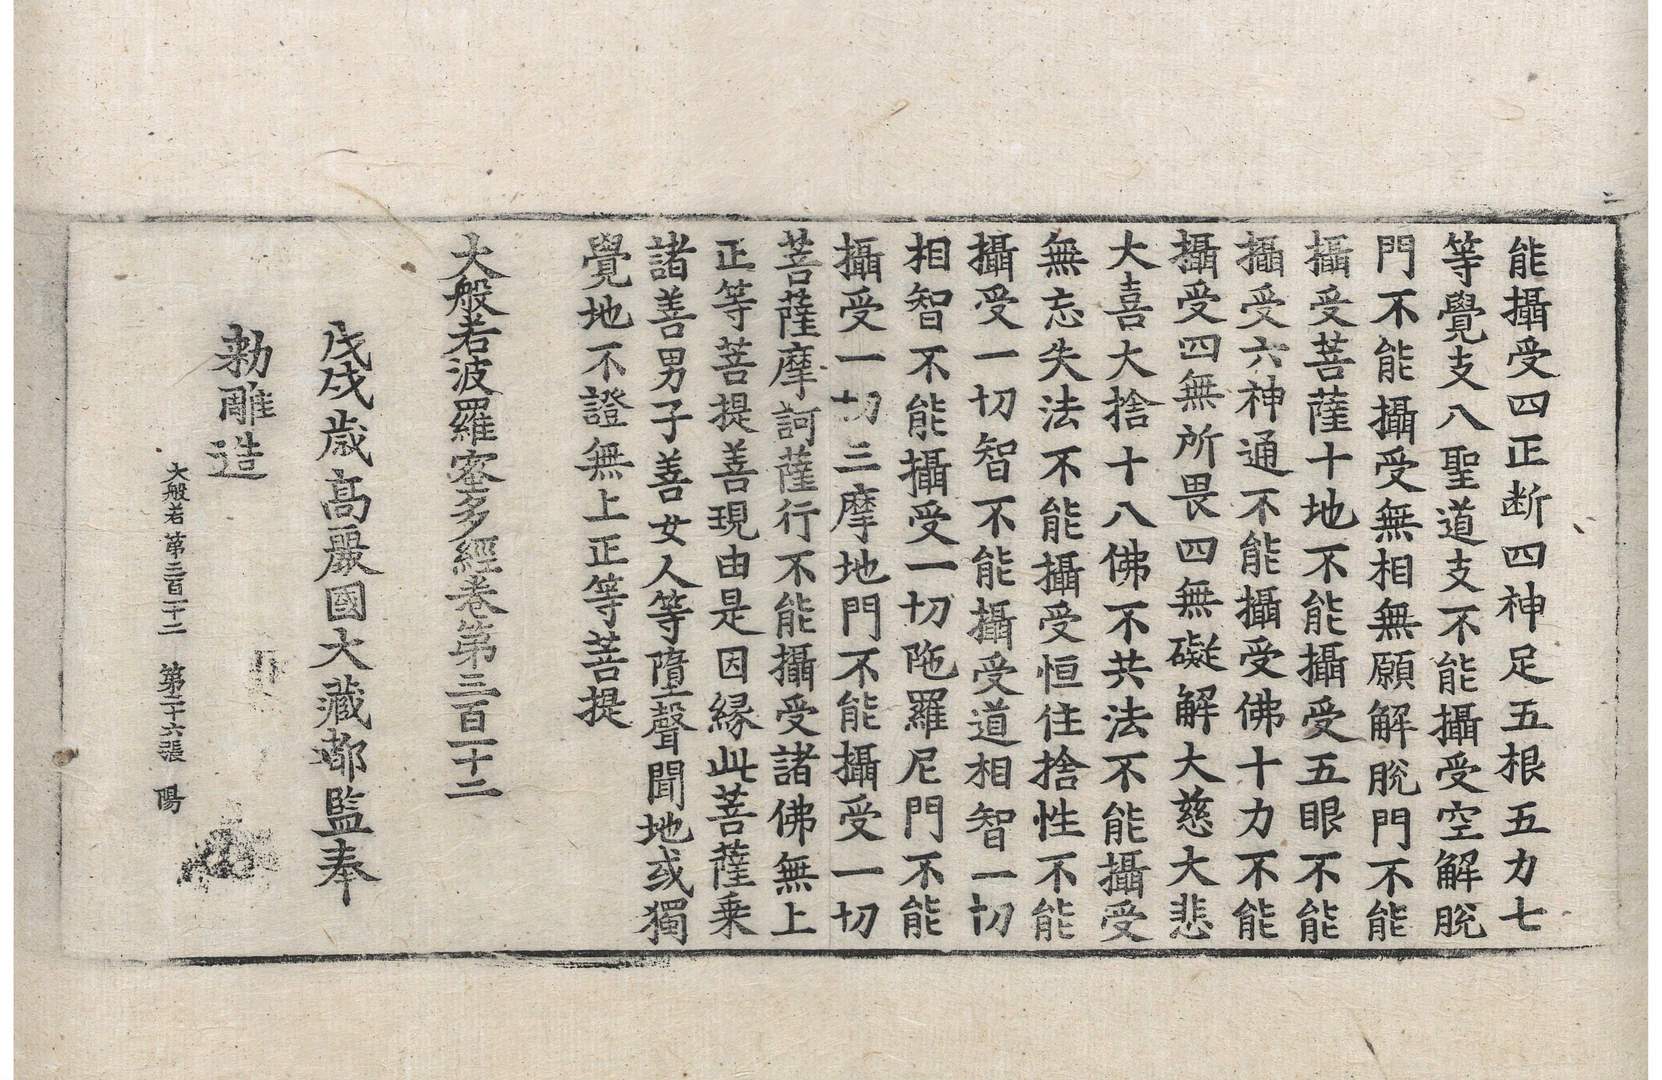 能攝受四正断四神足五根五力七
等覺支八聖道支不能攝受空解脫
門不能攝受無相無願解脫門不能
攝受菩薩十地不能攝受五眼不能
攝受六神通不能攝受佛十力不能
攝受四無所畏四無礙解大慈大悲
大喜大捨十八佛不共法不能攝受
無忘失法不能攝受恒住捨性不能
攝受一切智不能攝受道相智一切
相智不能攝受一切陁羅尼門不能
攝受一切三摩地門不能攝受一切
菩薩摩訶薩行不能攝受諸佛無上
正等菩提善現由是因緣此菩薩乗
諸善男子善女人等墮聲聞地或獨
覺地不證無上正等菩提
大般若波羅蜜多經卷第三百一十二
戊戌歲高麗國大藏都監奉
勅雕造
大般若第三百一十二 第二十六張 陽